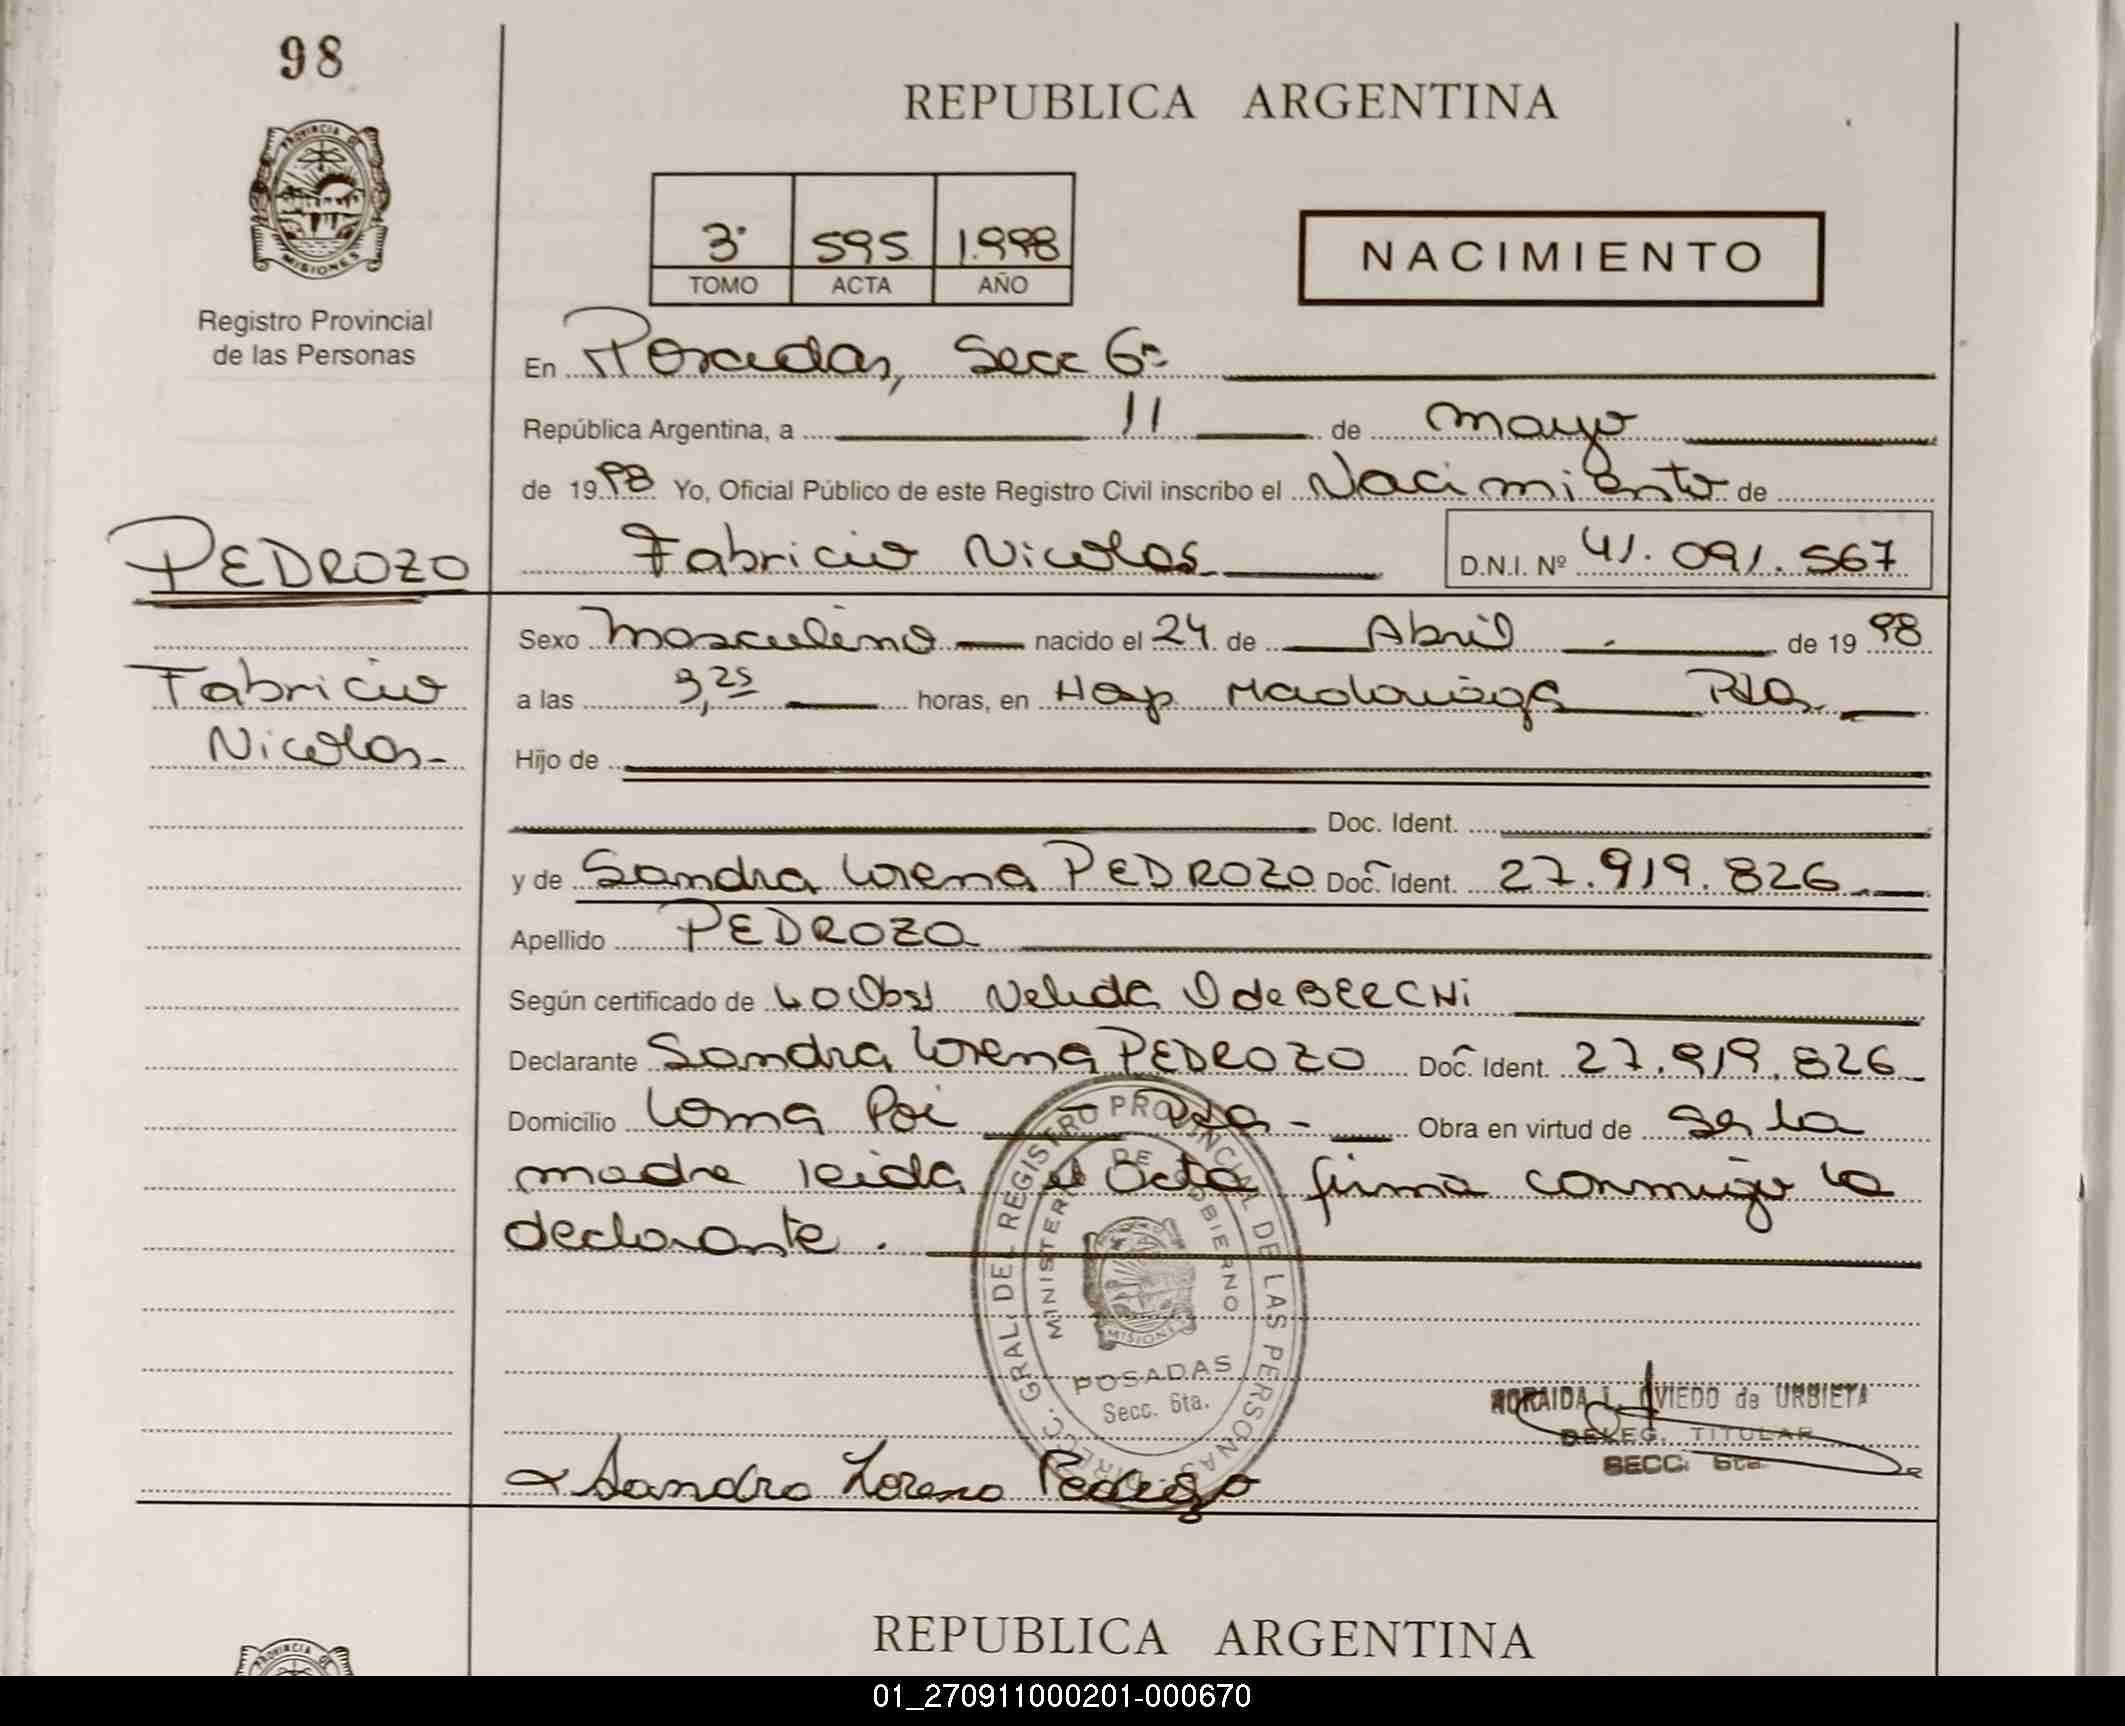 98
REPUBLICA ARGENTINA
PROVINCIA DE
MISIONES
Registro Provincial
de las Personas
3º 595 1.998
TOMO ACTA AÑO
NACIMIENTO
En Posadas, Secc 6ª
República Argentina, a 11 de mayo
de 1998 Yo, Oficial Público de este Registro Civil inscribo el Nacimiento de
PEDROZO
Fabricio Nicolas D.N.I. Nº 41.091.567
Sexo masculino nacido el 24 de Abril de 1998
Fabricio
Nicolas
a las 9,25 horas, en Hosp Madariaga Pdas
Hijo de
Doc. Ident.
y de Sandra Lorena PEDROZO Doc. Ident. 27.919.826
Apellido PEDROZO
Según certificado de la Obst Nelida de
Declarante Sandra Lorena PEDROZO Doc. Ident. 27.919.826
Domicilio Loma Poi - Pdas - Obra en virtud de ser la
madre leida el acta firma conmigo la
declarante.
DIRECC. GRAL. DEL REGISTRO PROVINCIAL DE LAS PERSONAS
MINISTERIO DE GOBIERNO
MISIONES
POSADAS
Secc. 6ta.
L. OVIEDO de URBIETA
DELEG. TITULAR
SECC. 6ta
Sandra Lorena Pedrozo
REPUBLICA ARGENTINA
PROVINCIA DE
01_270911000201-000670